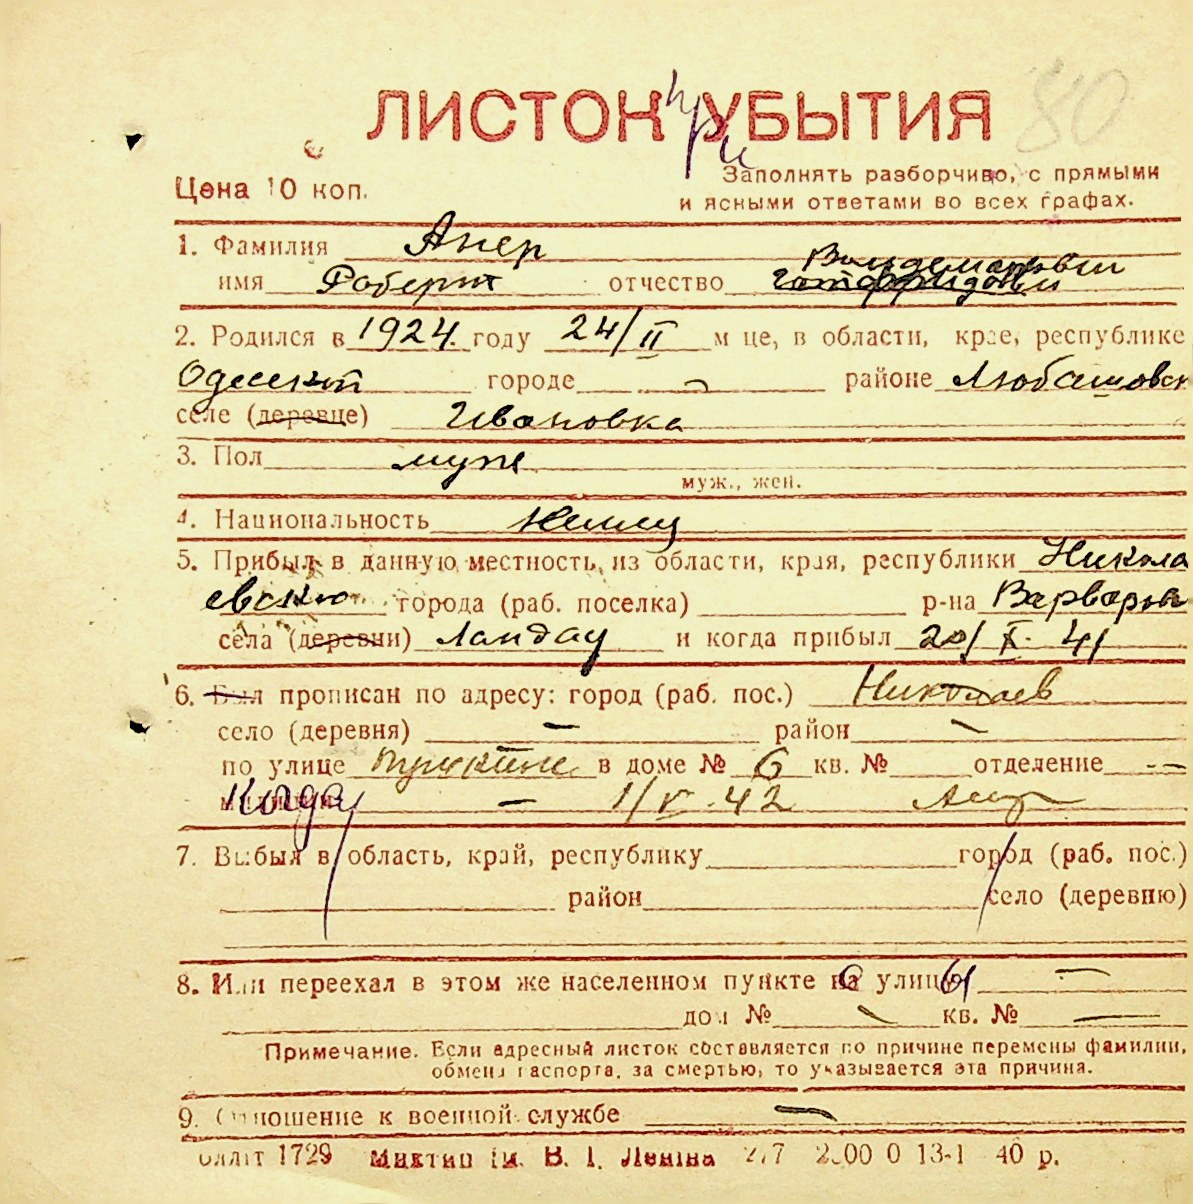 ЛИСТОК при УБЫТИЯ 80
Цена 10 коп.
Заполнять разборчиво, с прямыми
и ясными ответами во всех графах.
1. Фамилия Анер
Вольдемарович
имя Роберт отчество Готфридович
2. Родился в 1924 году 24/II м це, в области, крае, республике
Одесской городе районе Любашовск
селе (деревце) Ивановка
3. Пол муж
муж., жен.
4. Национальность Немец
5. Прибыл в данную местность, из области, края, республики Никола
евской города (раб. поселка) р-на Варваров
села (деревни) Ландау и когда прибыл 20/X. 41
6. Был прописан по адресу: город (раб. пос.) Николаев
село (деревня) — район —
по улице Пушкине в доме № 6 кв. № отделение —
милиции Когда — 1/V.42 Анер
7. Выбыл в область, край, республику город (раб. пос.)
район село (деревню)
8. Или переехал в этом же населенном пункте на с улицу ы —
дом № — кв. № —
Примечание. Если адресный листок составляется по причине перемены фамилии,
обмена паспорта, за смертью, то указывается эта причина.
9. Отношение к военной службе —
1729 Миктип ім. В. І. Леніна 13-1 40 р.